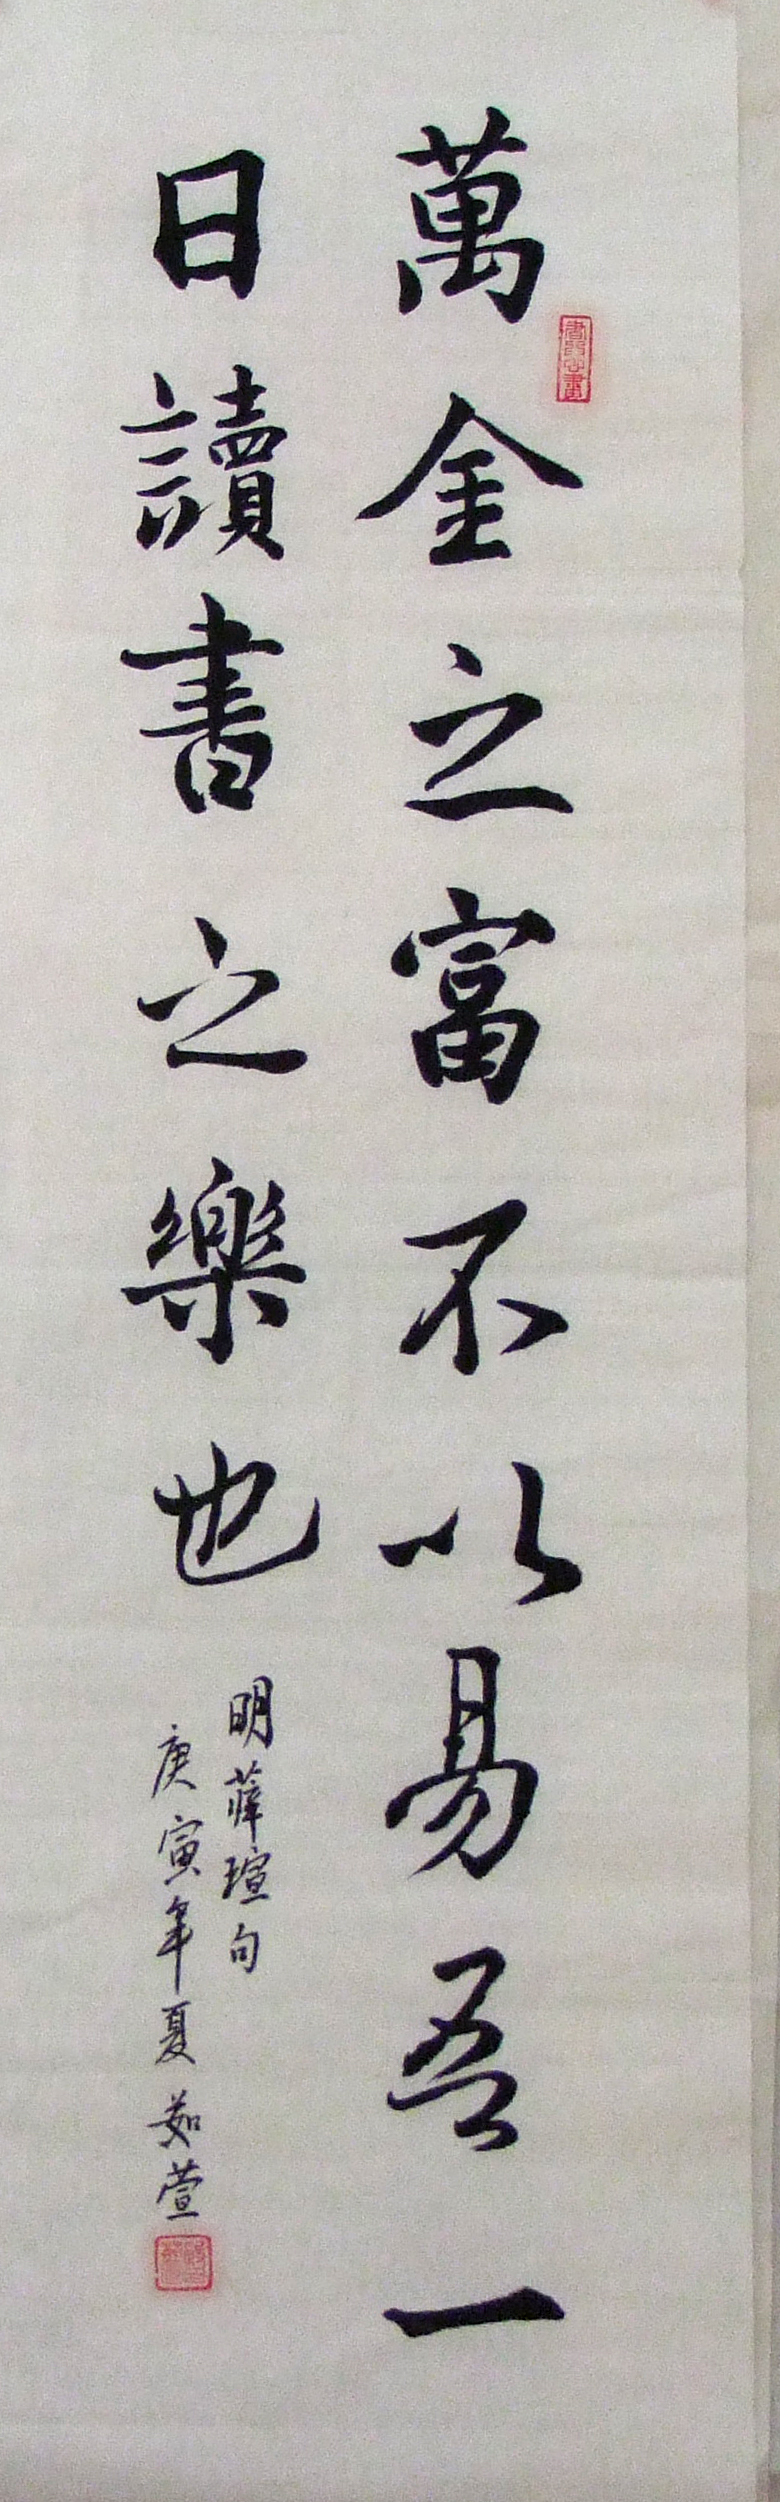 萬金之富不以易吾一
日讀書之樂也
明薛瑄句
庚寅年夏茹萱